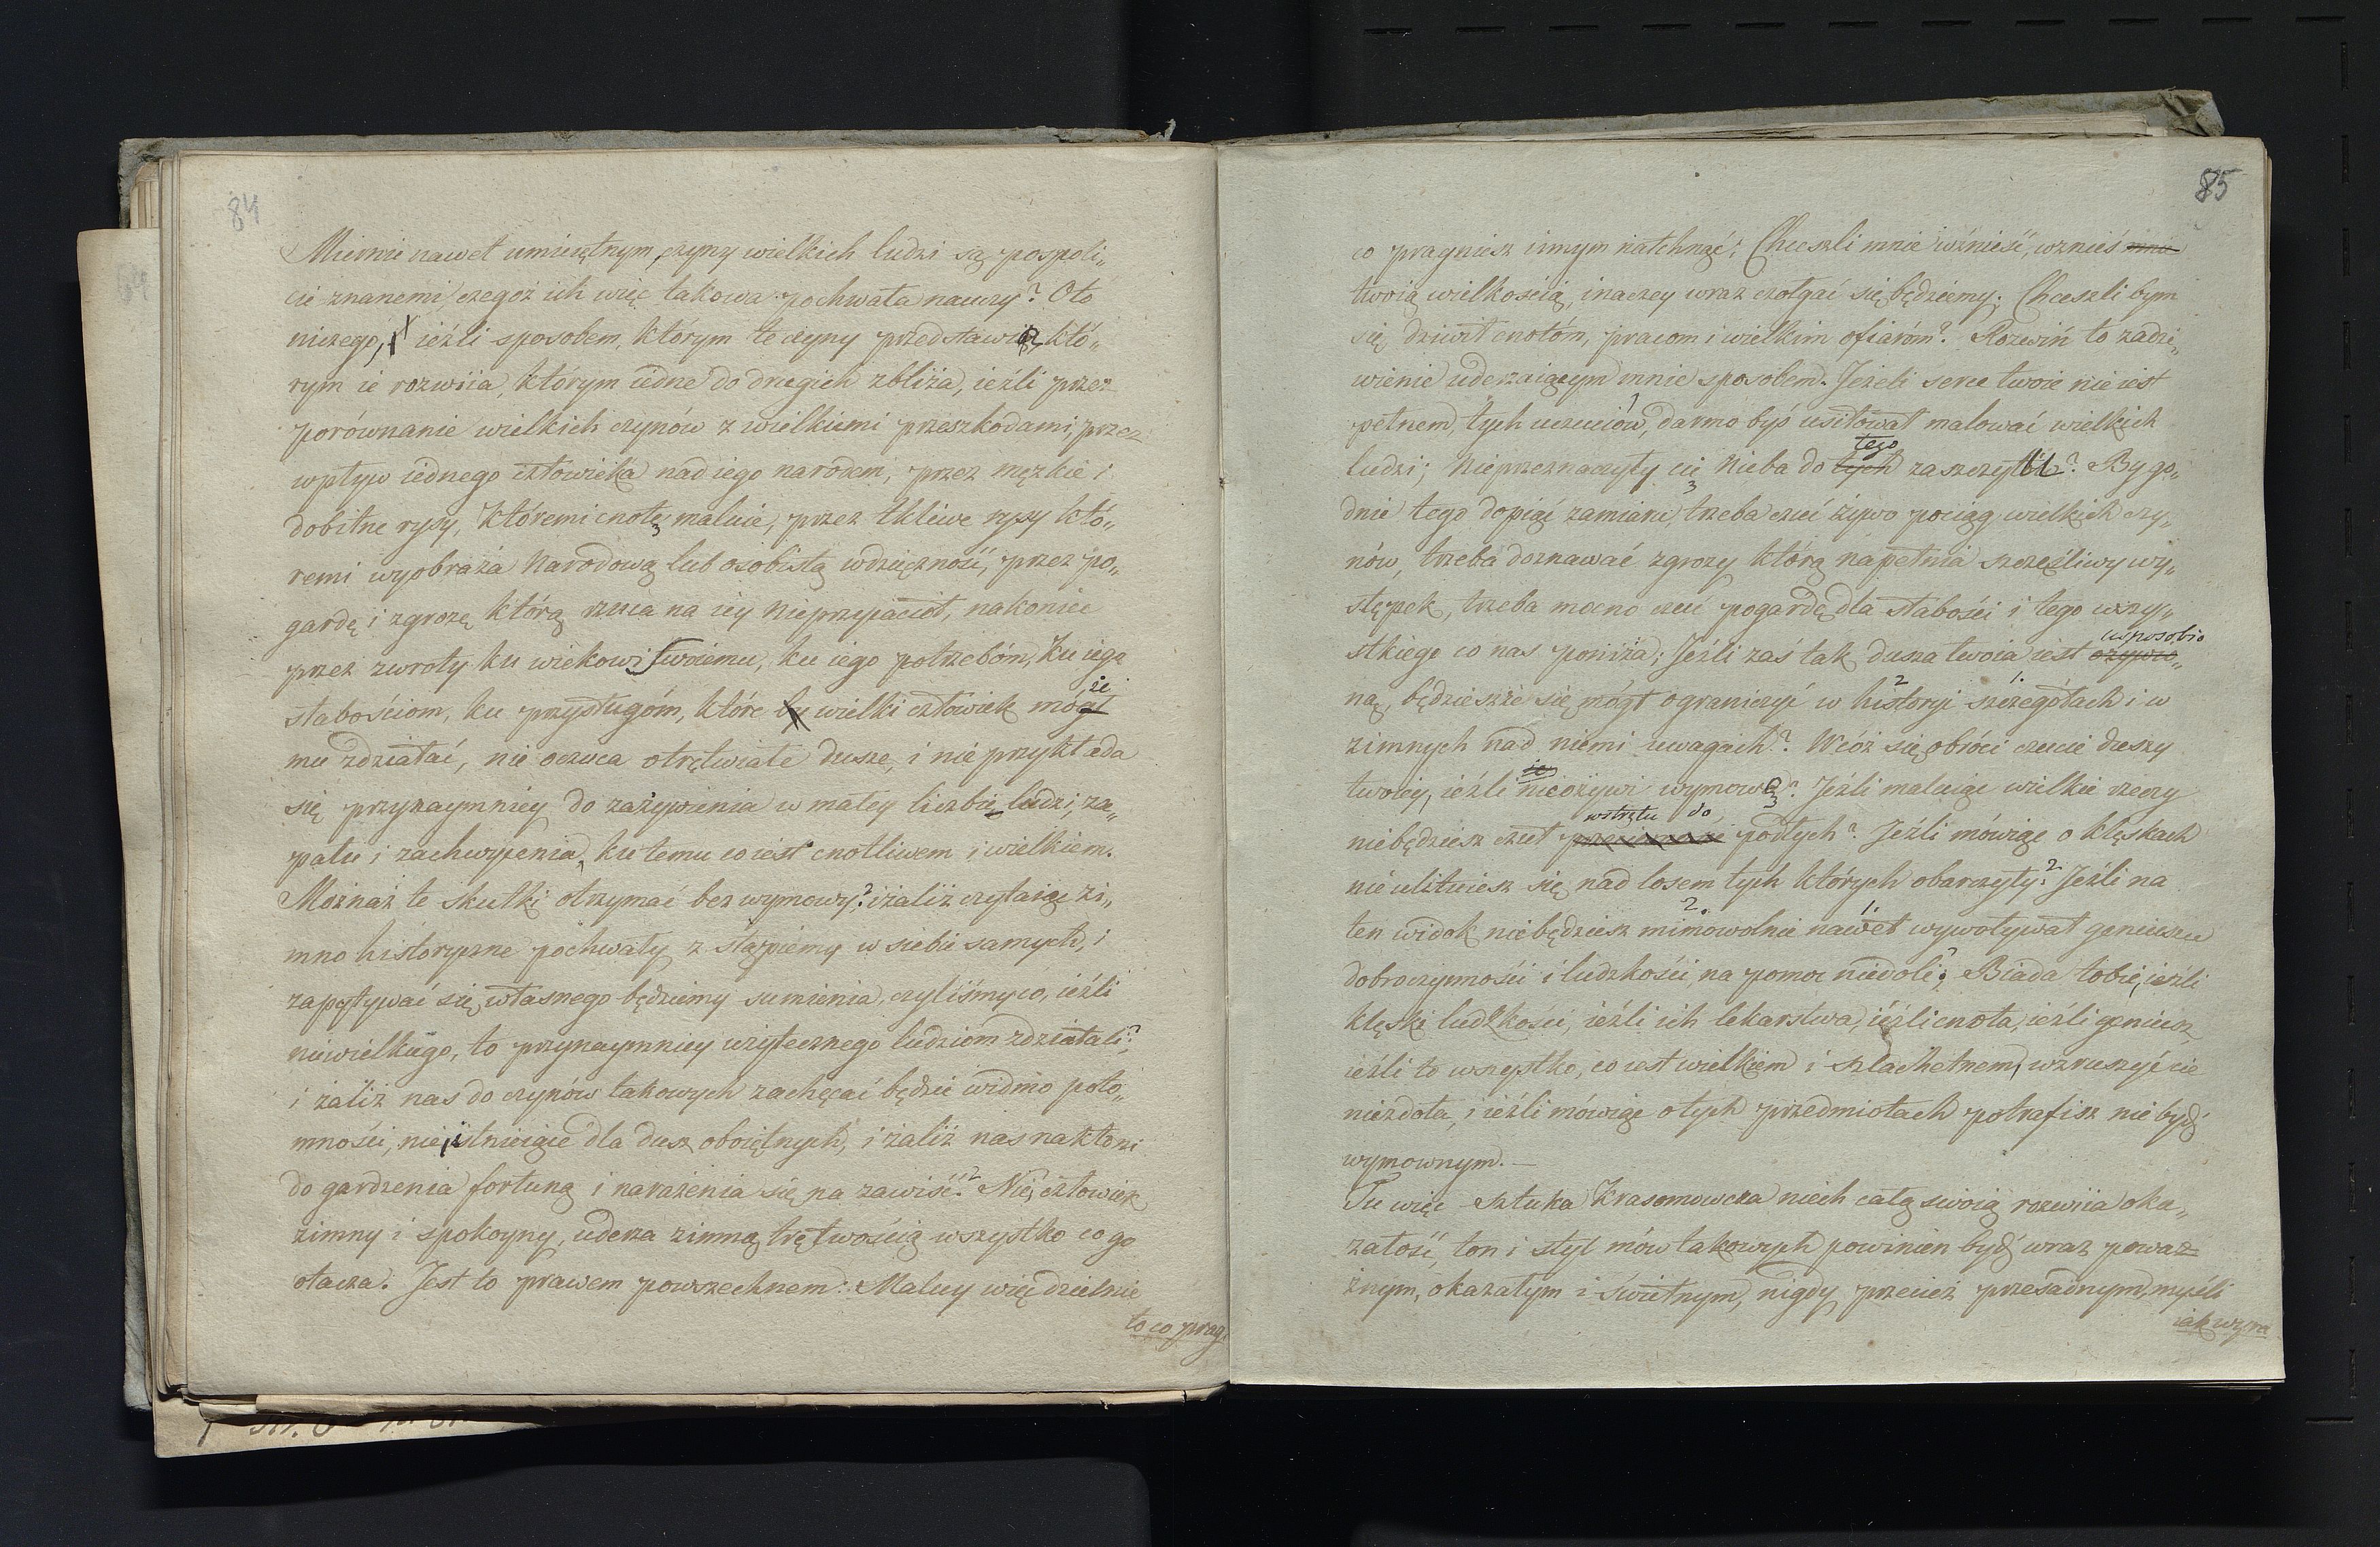 84
Miernie nawet umieiętnym, czyny wielkich ludzi są pospoli„
cie znanemi, czegoż ich więc takowa pochwała nauczy? Oto
niczego, ieźli sposobem, którym te czyny przedstawia, któ„
rym ie rozwiia, którym iedne do drugich zbliża, ieźli przez
porównanie wielkich czynów z wielkiemi przeszkodami, przez
wpływ iednego człowieka nad iego narodem, przez męzkie i
dobitne rysy, któremi cnotę maluie, przez tkliwe rysy któ„
remi wyobraża Narodową lub osobistą wdzięczność, przez po„
gardę i zgrozę którą rzuca na iey nieprzyiaciół, nakoniec
przez zwroty ku wiekowi swoiemu, ku iego potrzebóm, ku iego
słabościom, ku przysługóm, które by wielki człowiek mógł
że
mu zdziałać, nie ocuca otrętwiałe dusze, i nie przykłada
się przynaymniey do zażywienia w małey liczbie ludzi, za„
pału i zachwycenia, ku temu co iest cnotliwem i wielkiem.
Możnaż te skutki otrzymać bez wymowy? iżaliż czytaiąc zi„
mno historyczne pochwały z stąpiemy w siebie samych, i
zapytywać się własnego będziemy sumienia, czyliśmy co, ieźli
niewielkiego, to przynaymniey użytecznego ludzióm zdziałali?
i żaliż nas do czynów takowych zachęcać będzie widmo poto„
mności, nie istnieiące dla dusz oboiętnych, i żaliż nas nakłoni
do gardzenia fortuną i narażenia się na zawiść? Nie, człowiek
zimny i spokoyny, uderza zimną trętwością wszystko co go
otacza. Jest to prawem powszechnem: Maluy więc dzielnie
to co prag.
85
co pragniesz innym natchnąć; Chceszli mnie wznieść, wznieś mnie
twoią wielkością, inaczey wraz czołgać się będziemy. Chceszli bym
się dziwił cnotóm, pracom i wielkim ofiaróm? Rozwiń to zadzi„
wienie uderzaiącym mnie sposobem. Jeżeli serce twoie nie iest
pełnem, tych uczuciów, darmo byś usiłował malować wielkich
tego
ludzi; Nieprzeznaczyły cię Nieba do tych zaszczytu? By go„
dnie tego dopiąć zamiaru, trzeba czuć żywo pociąg wielkich czy„
nów, trzeba doznawać zgrozy którą napełnia szczęśliwy wy„
stępek, trzeba mocno czuć pogardę dla słabości i tego wszy„
stkiego co nas poniża; Jeźli zaś tak dusza twoia iest ozywio„
usposobio
2 1.
ną, będzieszże się mógł ograniczyć w historyi szczegółach i w
zimnych nad niemi uwagach? W cóż się obróci czucie duszy
ie
twoiey, ieźli nieożywi wymowę? Jeźli maluiąc wielkie rzeczy
wstrętu do
niebędziesz czuł podłych? Jeźli mówiąc o klęskach
nie ulituiesz się nad losem tych których obarczyły? Jeźli na
2. 1.
ten widok niebędziesz mimowolnie nawet wywoływał geniuszu
dobroczynności i ludzkości, na pomoc niedoli? Biada tobie, ieźli
klęski ludzkości, ieźli ich lekarstwa, ieźli cnota, ieźli geniusz
ieźli to wszystko, co iest wielkiem i szlachetnem, wzruszyć cie
niezdoła, i ieźli mówiąc o tych przedmiotach potrafisz nie bydź
wymownym. —
Tu więc sztuka krasomowcza niech całą swoią rozwiia oka„
załość, ton i styl mów takowych powinien bydź wraz poważ=
żnym, okazałym i świetnym, nigdy przecież przesadnym, myśli
iak wzra